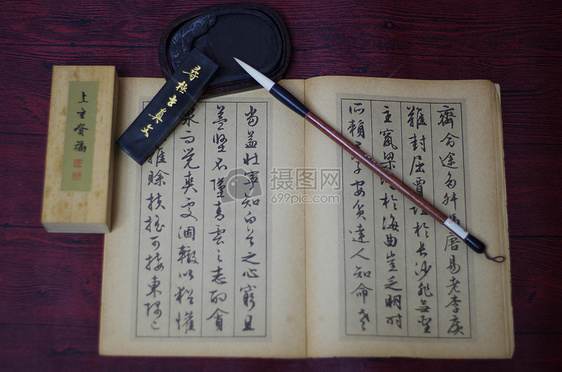 齊命途多舛馮唐易老李廣
難封屈賈誼於長沙非無聖
主竄梁鴻於海曲豈乏明時
所賴君子安貧達人知命老
當益壯寧知白首之心窮且
益堅不墜青雲之志酌貪
泉而覺爽處涸轍以猶懽
雖賒扶搖可接東隅已
摄图网
699pic.com